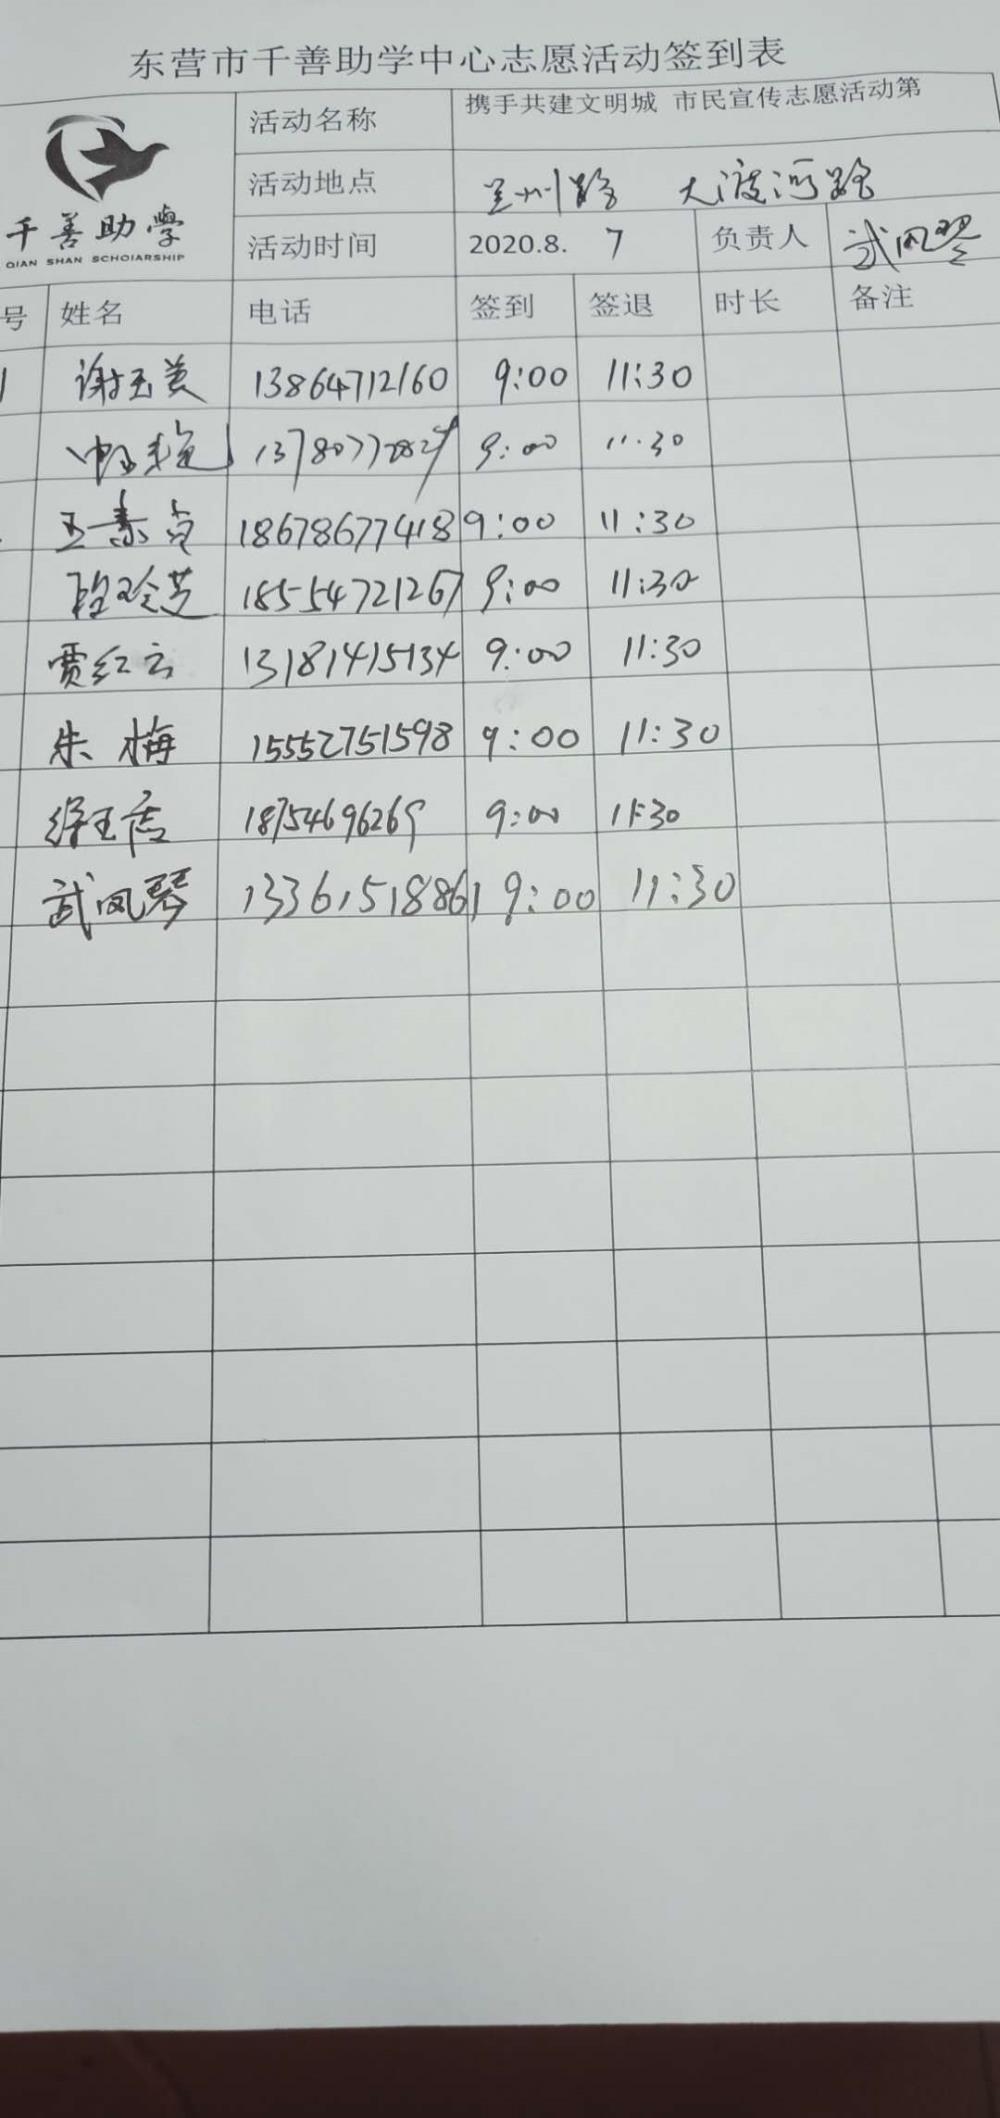 东营市千善助学中心志愿活动签到表
千善助學
QIAN SHAN SCHOIARSHIP
活动名称 携手共建文明城 市民宣传志愿活动第
活动地点 兰州路 大渡河路
活动时间 2020.8. 7 负责人 武凤琴
号 姓名 电话 签到 签退 时长 备注
1 谢玉美 13864712160 9:00 11:30
9:00 11:30
王素 18678677418 9:00 11:30
18554721267 9:00 11:30
贾红云 13181415134 9:00 11:30
朱梅 15552751598 9:00 11:30
徐玉 18754696269 9:00 11:30
武凤琴 13361518861 9:00 11:30